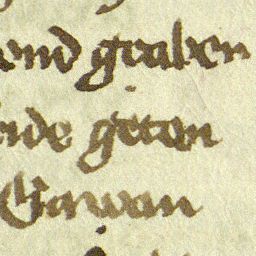 end graben
nde geten
Gawan